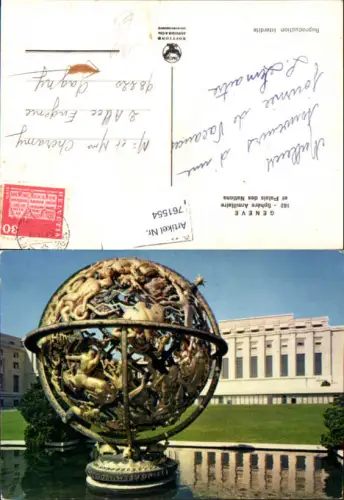 GENEVE
162 - Sphère Armillaire
et Palais des Nations
Meilleurs
souvenirs d'une
Journée de Vacances
Mr et Mme
2 Allée Eugène
93220 Gagny
HELVETIA
30
Artikel Nr.
761554
Reproduction interdite